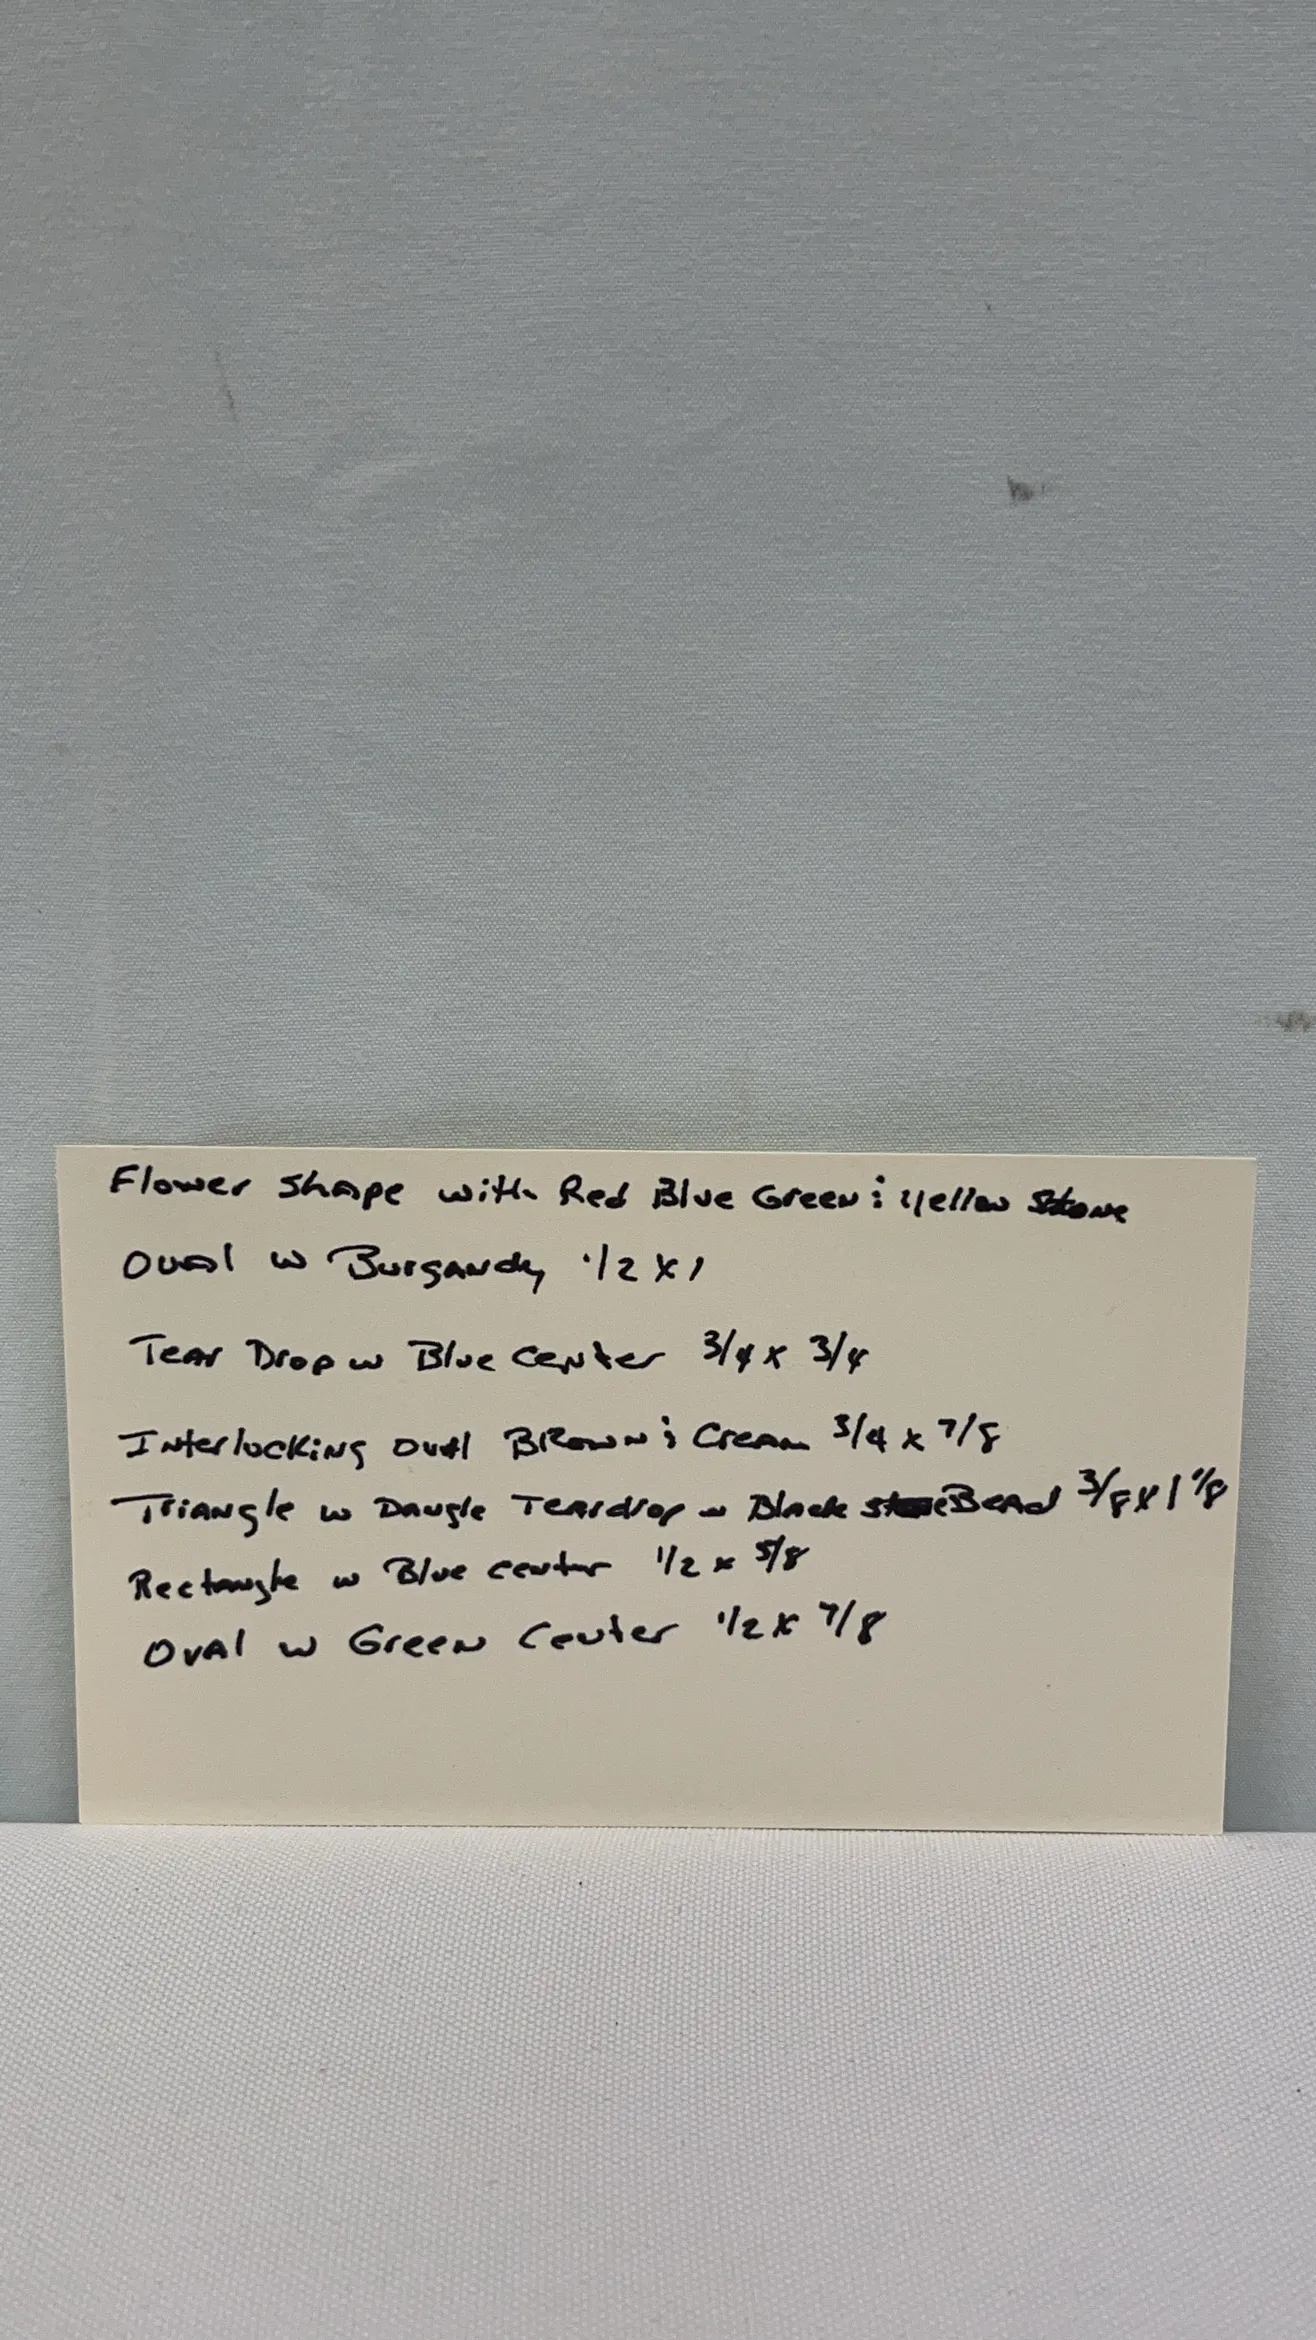 Flower Shape with Red Blue Green & Yellow Stone
Oval w Burgandy 1/2 x 1
Tear Drop w Blue Center 3/4 x 3/4
Interlocking Oval Brown & Cream 3/4 x 7/8
Triangle w Dangle Teardrop w Black Bead 3/8 x 1 1/8
Rectangle w Blue Center 1/2 x 5/8
Oval w Green Center 1/2 x 7/8